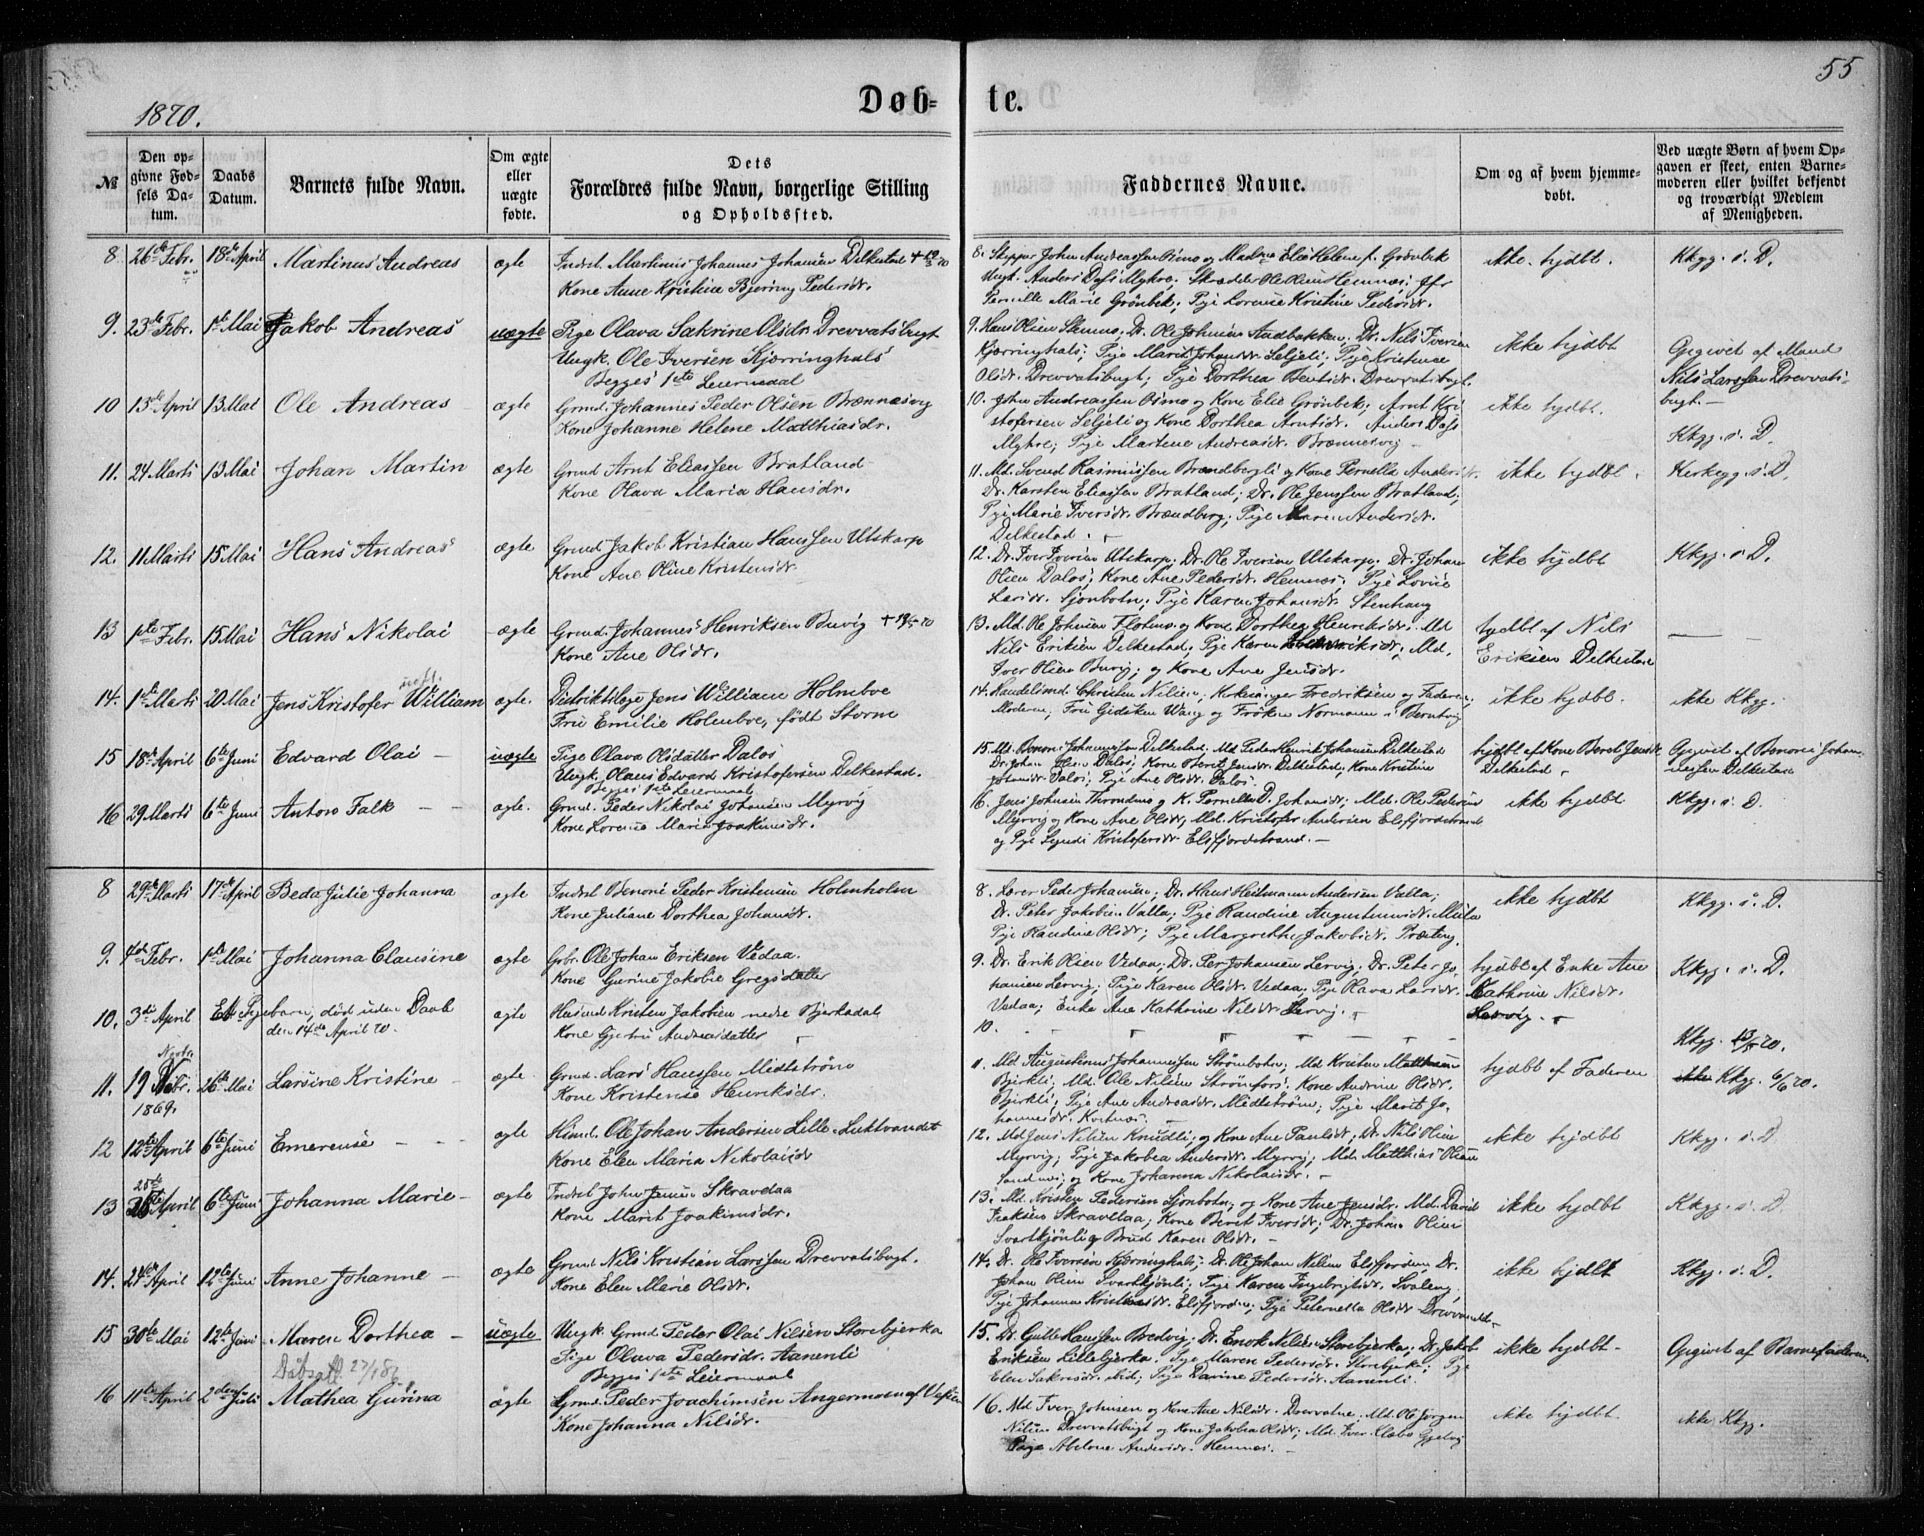 55
1870.
Døb-
te.
№
Den op-
givne Fød-
sels Da-
tum.
Daabs
Datum.
Barnets fulde Navn.
Om ægte
eller
uægte
fødte.
Dets
Forældres fulde Navn, borgerlige Stilling
og Opholdssted.
Faddernes Navne.
Om og af hvem hjemme-
døbt.
Ved uægte Børn af hvem Op-
gaven er skeet, enten Barne-
moderen eller hvilket bekjendt
og troværdigt Medlem
af Menigheden.
8. 26de Febr. 18de April Martinus Andreas ægte
Indst. Martinus Johannes Johansen Delkestad
Kone Anne Kristine Bjøring Pedersdr.
8. Skipper John Andreassen Osmo og Madme Elie Helene f. Grønbek
Ungk. Anders Dass Myhre; Skrædder Ole Olsen Hemnæs; Jfr
Pernille Marie Grønbek; Pige Lorense Kristine Pedersdr.
ikke hjdbt.
Kkgg. s. D.
9. 23de Febr. 1ste Mai Jakob Andreas uægte
Pige Olava Sakrine Olsdr. Drevvatsbugt
Ungk. Ole Iversen Kjørringhals
Begges 1ste Leiermaal
9. Hans Olsen Stennæs; Dr. Ole Johnsen Andbakken; Dr. Nils Iversen
Kjørringhals; Pige Marit Johansdr. Seljeli; Pige Kristine
Olsdr. Drevvatsbugt; Pige Dorthea Bentsdr. Drevvatsbugt.
ikke hjdbt
Opgivet af Mand
Nils Larssen Drevvats-
bugt.
10 13de April 13 Mai Ole Andreas ægte
Grmd. Johannes Peder Olsen Brænnesvig
Kone Johanne Helene Matthiasdr.
10. John Andreassen Osmo og Kone Elie Grønbek; Arnt Kri-
stofersen Seljeli og Kone Dorthea Arntsdr. Anders Dass
Myhre; Pige Martene Andreasdr. Brænnesvig
ikke hjdbt.
Kkgg. s. D.
11. 24 Marts 13 Mai Johan Martin ægte
Grmd Arnt Eliassen Bratland
Kone Olava Maria Hansdr.
11. Md. Svend Rasmussen Brændbergli og Kone Pernella Andersdr.
Dr. Karsten Eliassen Bratland; Dr. Ole Jenssen Bratland;
Pige Marie Iversdr. Brændberg; Pige Maren Andersdr.
Delkestad.
ikke hjdbt.
Kirkegg. s. D.
12. 11 Marts 15 Mai Hans Andreas ægte
Grmd Jakob Kristian Hanssen Utskarp
Kone Ane Oline Kristensdr
12. Dr. Iver Iversen Utskarp; Dr. Ole Iversen Utskarp. Dr. Johan
Olsen Dalos; Kone Ane Pedersdr. Hemnæs. Pige Lovise
Larsdr. Sjonbotn; Pige Karen Johansdr. Stenhaug
ikke hjdbt
Kkgg. s. D.
13 1ste Febr. 15 Mai Hans Nikolai ægte
Grmd. Johannes Henriksen Buvig
Kone Ane Olsdr.
13. Md. Ole Johnsen Flotmo og Kone Dorthea Henriksdr. Md
Nils Eriksen Delkestad; Pige Karen Henriksdr; Md.
Iver Olsen Buvig; og Kone Ane Jensdr.
hjdbt af Nils
Eriksen Delkestad
14. 1ste Marts 20 Mai Jens Kristofer William ægte.
Distriktslæge Jens William Holmboe
Fru Emilie Holmboe, født Storm
14. Handelsmd. Christen Nilsen; Fredriksen og Faderen;
Moderen; Fru Gidsken Wang og Frøken Normann
ikke hjdbt.
ikke Kkgg.
15 18de April 6te Juni Edvard Olai - uægte
Pige Olava Olsdatter Dalos
Ungk. Olaus Edvard Kristofersen Delkestad.
Begges 1ste Leiermaal
15. Md. Benoni Johannessen Delkestad; Md Peder Henrik Johansen Delkestad
Dr. Johan Olsen Dalos; Kone Beret Jensdr. Delkestad; Kone Kristine
Johansdr. Dalos; Pige Ane Olsdr. Dalos.
hjdbt af Kone Beret Jensdr
Delkestad
Opgivet af Benoni Johan-
nessen Delkestad
16 29 Marts 6te Juni Anton Falk - - ægte.
Grmd. Peder Nikolai Johansen Myrvig
Kone Lorense Maria Joakimsdr.
6. Jens Johnsen og K. Pernella D. Johansdr; Md. Ole Pedersen
Myrvig og Kone Ane Olsdr; Md. Kristofer Andersen Elsfjordstrand
og Pige Synnøi Kristofersdr. Elsfjordstrand.
ikke hjdbt
Kkgg. s. D.
8 29de Marts 17de April Beda Julie Johanna ægte
Indst Benoni Peder Kristensen Holmholm
Kone Juliane Dorthea Johansdr.
8. Lærer Peder Johansen; Dr. Hans Heitmann Andersen Valla;
Dr. Peter Jakobsen Valla; Pige Randine Augustinusdr.
Pige Randine Olsdr; Pige Margrethe Jakobsdr. Præsteng.
ikke hjdbt
Kkgg. s. D.
9. 4de Febr. 1ste Mai Johanna Clausine ægte
Gbr. Ole Johan Eriksen Vedaa.
Kone Gurine Jakobie Gregsdatter
9. Dr. Erik Olsen Vedaa; Dr. Per Johansen Lervig; Dr. Peter Jo-
hansen Lervig; Pige Karen Olsdr. Vedaa; Pige Olava Larsdr.
Vedaa; Enke Ane Kathrine Nilsdr Lervig.
hjdbt af Enke Ane
Kathrine Nilsdr.
Lervig.
Kkgg. s. D.
10. 3de April Et Pigebarn, død uden Daab
den 14de April 70. ægte
Husmd Kristen Jakobsen nedre Bjerkadal
Kone Gjertru Andreasdatter
10.
Kkgg. 13/5 70.
11. 19 Novbr. 1869. 26te Mai Larsine Kristine - ægte
Grmd. Lars Hanssen Midtstrøm
Kone Kristense Henriksdr.
11. Md. Augustinus Johannessen Strømbotn; Md Kristen
Bjerkli; Md. Ole Nilsen Strømfors; Kone Andrine Olsdr.
Bjerkli; Pige Ane Andreasdr. Midtstrøm; Pige Marit Jo-
hannesdr.
hjdbt af Faderen
ikke Kkgg. 6/6 70.
12 12te April 6te Juni Emerense - - - ægte
Husmd. Ole Johan Andersen Lille-Luktvandet
Kone Elen Maria Nikolaisdr
12. Md Jens Nilsen Knudli, og Kone Ane Paulsdr; Dr. Nils Olsen
Myrvig; Pige Jakobea Andersdr. Myrvig; Md. Matthias Olsen
Sandnes; og Kone Johanna Nikolaisdr.
ikke hjdbt
Kkgg. s. D
13 25de April 6te Juni Johanna Marie - ægte
Indst John Jensen Skravdaa
Kone Marit Joakimsdr.
13. Md. Kristen Pedersen Sjonbotn, og Kone Ane Jensdr. Md. David
Isaksen Skravlaa; Kone Beret Iversdr; Dr. Johan Olsen
Svartkjønli; Brud Karen Olsdr.
ikke hjdbt
Kkgg. s. D
14. 24de April 12te Juni Anne Johanne - ægte
Grmd Nils Kristian Larssen Drevvatsbugt.
Kone Elen Marie Olsdr.
14. Dr. Ole Iversen Kjørringhals; Dr. Ole Johan Nilsen Elsfjorden; Dr.
Johan Olsen Svartkjønli; Pige Karen Ingebrigtsdr. Svaleng;
Pige Johanna Kristensdr. Elsfjorden; Pige Peternella Olsdr Drevvandet
ikke hjdbt
Kkgg. s. D.
15 30te Mai 12te Juni Maren Dorthea - uægte
Dåbsatt. 27/1 86
Ungk. Grmd. Peder Olai Nilsen Storebjerka
Pige Olava Pedersdr. Aanenli
Begges 1ste Leiermaal
15. Dr. Gulle Hanssen Bredvig; Dr. Enok Nilsen Storebjerka; Dr. Jakob
Eriksen Lillebjerka. Pige Maren Pedersdr. Storebjerka; Pige
Elen Sakrisdr. ibid; Pige Davine Pedersdr. Aanenli.
ikke hjdbt
Opgivet af Barnefaderen
16 11te April 2den Juli Mathea Gurina ægte
Grmd. Peder Joachimsen Angermoen af Vefsen
Kone Johanna Nilsdr.
16. Md Iver Johnsen og Kone Ane Nilsdr. Drevvatne. Md. Ole Jørgen
Nilsen Drevvatsbugt og Kone Jakobea Olsdr; Md. Iver Klæbo
Pige Abelone Andersdr. Hemnes.
ikke hjdbt.
ikke Kkgg.